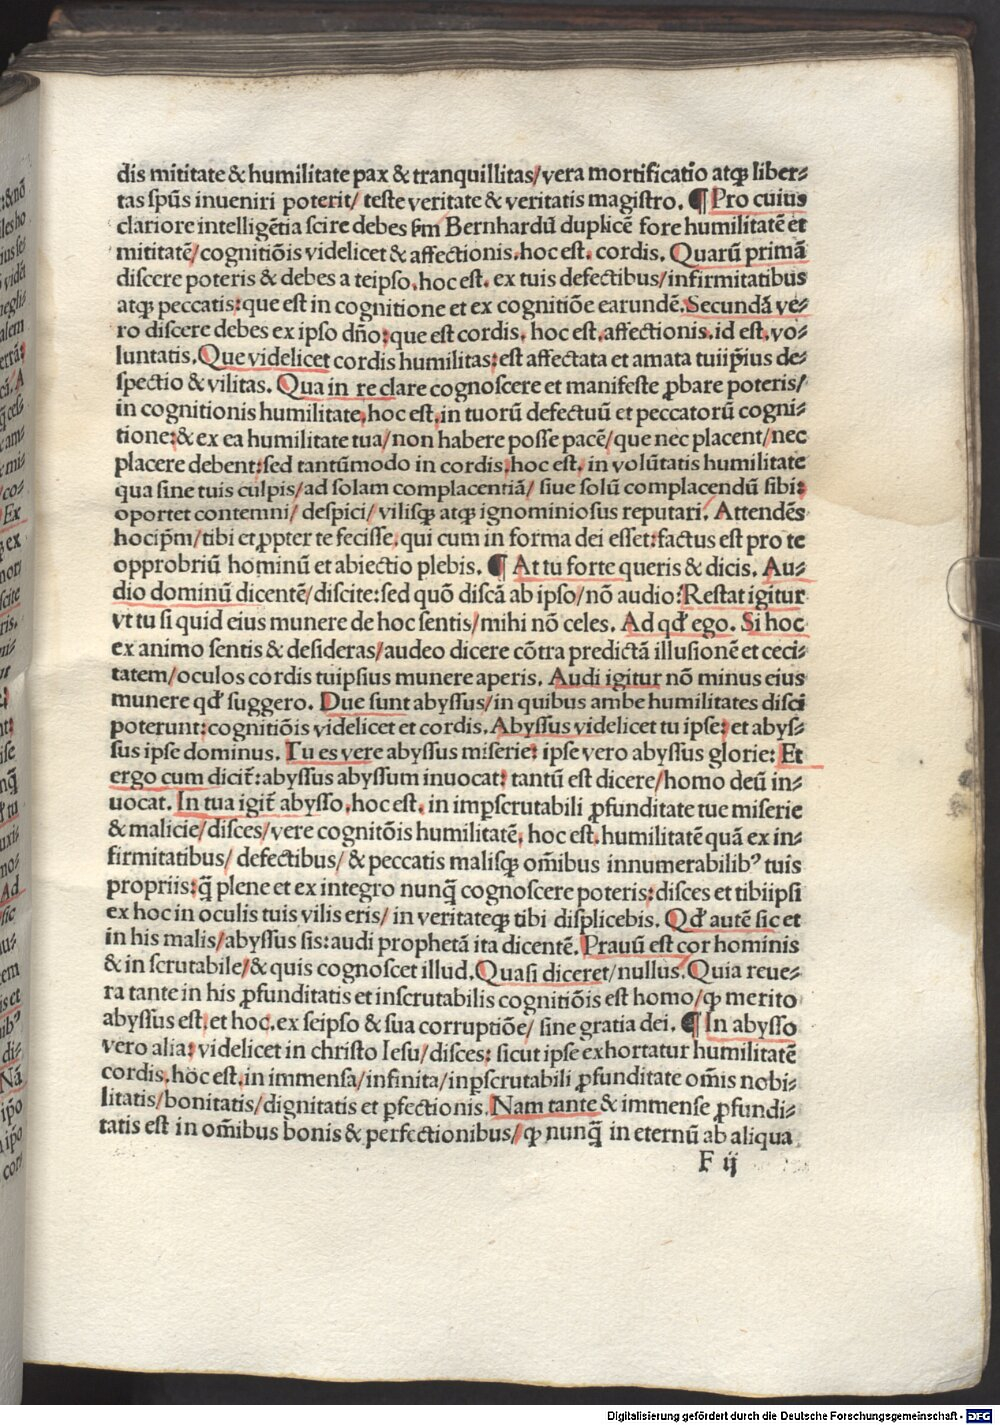 dis mititate & humilitate pax & tranquillitas/vera mortificatio atqꝫ liber⸗
tas spūs inueniri poterit/ teste veritate & veritatis magistro. ¶ Pro cuius
clariore intelligētia scire debes ẜm Bernhardū duplicē fore humilitatē et
mititatē/cognitiōis videlicet & affectionis.hoc est. cordis. Quarū primā
discere poteris & debes a teipso.hoc est. ex tuis defectibus/infirmitatibus
atqꝫ peccatis:que est in cognitione et ex cognitiōe earundē.Secundā ve⸗
ro discere debes ex ipso dño:que est cordis. hoc est.affectionis.id est.vo⸗
luntatis.Que videlicet cordis humilitas:est affectata et amata tuiip̄ius de⸗
spectio & vilitas. Qua in re clare cognoscere et manifeste ꝓbare poteris/
in cognitionis humilitate.hoc est.in tuorū defectuū et peccatorū cogni⸗
tione:& ex ea humilitate tua/non habere posse pacē/que nec placent/nec
placere debent:sed tantūmodo in cordis.hoc est. in volūtatis humilitate
qua sine tuis culpis/ad solam complacentiā/ siue solū complacendū sibi:
oportet contemni/ despici/ vilisqꝫ atqꝫ ignominiosus reputari. Attendēs
hocip̄m/tibi et ꝓpter te fecisse.qui cum in forma dei esset:factus est pro te
opprobriū hominū et abiectio plebis. ¶ At tu forte queris & dicis. Au⸗
dio dominū dicentē/discite:sed quō discā ab ipso/nō audio:Restat igitur
vt tu si quid eius munere de hoc sentis/mihi nō celes. Ad qđ ego. Si hoc
ex animo sentis & desideras/audeo dicere cōtra predictā illusionē et ceci⸗
tatem/oculos cordis tuipsius munere aperis. Audi igitur nō minus eius
munere qđ suggero. Due sunt abyssus/in quibus ambe humilitates disci
poterunt:cognitiōis videlicet et cordis.Abyssus videlicet tu ipse: et abys⸗
sus ipse dominus. Tu es vere abyssus miserie: ipse vero abyssus glorie: Et
ergo cum dicit̄:abyssus abyssum inuocat: tantū est dicere/homo deū in⸗
uocat. In tua igit̄ abysso.hoc est. in imꝑscrutabili ꝓfunditate tue miserie
& malicie/disces/vere cognitōis humilitatē. hoc est.humilitatē quā ex in⸗
firmitatibus/ defectibus/ & peccatis malisqꝫ om̄ibus innumerabilibꝰ tuis
propriis:q̄̄ plene et ex integro nunq̄̄ cognoscere poteris:disces et tibiipsi
ex hoc in oculis tuis vilis eris/ in veritateqꝫ tibi displicebis. Qđ autē sic et
in his malis/abyssus sis:audi prophetā ita dicentē. Prauū est cor hominis
& in scrutabile/& quis cognoscet illud.Quasi diceret/nullus.Quia reue⸗
ra tante in his ꝓfunditatis et inscrutabilis cognitiōis est homo/ꝙ merito
abyssus est.et hoc.ex seipso & sua corruptiōe/ sine gratia dei. ¶ In abysso
vero alia: videlicet in christo Iesu/disces: sicut ipse exhortatur humilitatē
cordis.hoc est.in immensa/infinita/inꝑscrutabili ꝓfunditate om̄is nobi⸗
litatis/bonitatis/dignitatis et ꝑfectionis.Nam tante & immense ꝓfundi⸗
tatis est in om̄ibus bonis & perfectionibus/ꝙ nunq̄̄ in eternū ab aliqua
F ij
Digitalisierung gefördert durch die Deutsche Forschungsgemeinschaft - DFG